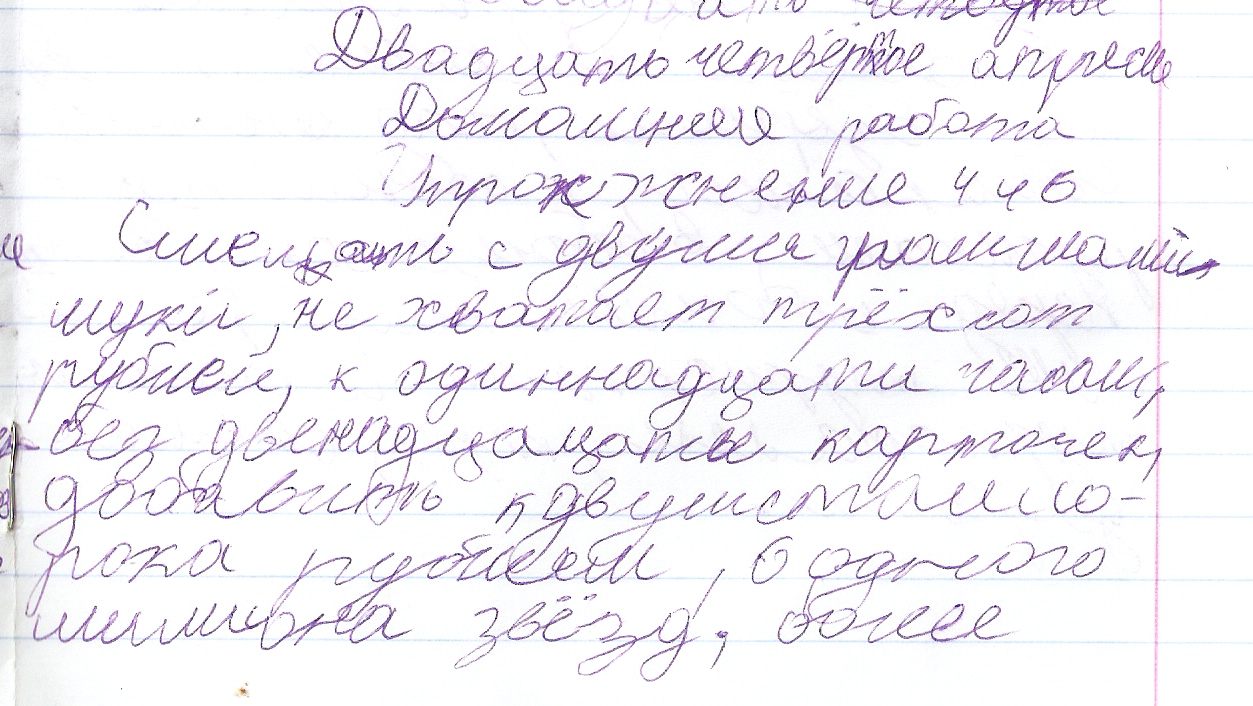 Двадцать четвёртое апреля
Домашняя работа
Упражнение 446
Смешать с двумя граммами
муки, не хватает трёхсот
рублей, к одиннадцати часам,
без двенадцацати карточек,
добавить к двумстам со-
рока рублям, одного
миллиона звёзд, более